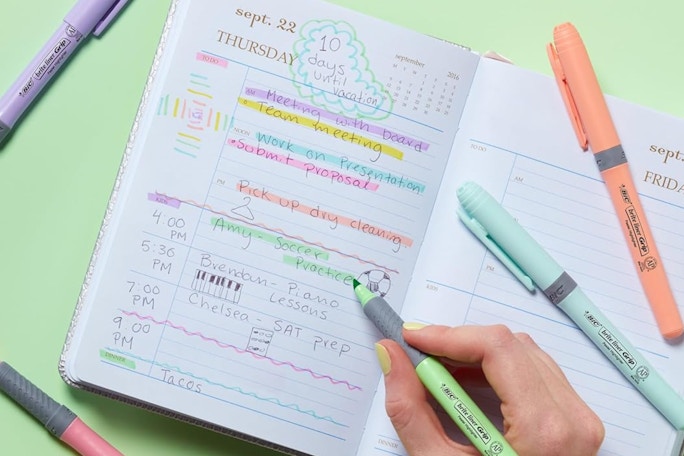 sept. 22
THURSDAY
10
days
until
vacation
september 2016
TO DO
AM
Meeting with board
Team meeting
NOON
Work on Presentation
Submit Proposal
PM
Pick up dry cleaning
KIDS
4:00 PM
Amy - Soccer
Practice
5:30 PM
Brendan - Piano
Lessons
7:00 PM
Chelsea - SAT prep
9:00 PM
DINNER
Tacos
sept.
FRIDAY
TO DO
AM
PM
KIDS
DINNER
BIC brite liner Grip
BIC brite liner Grip
BIC brite liner Grip
BIC brite liner Grip